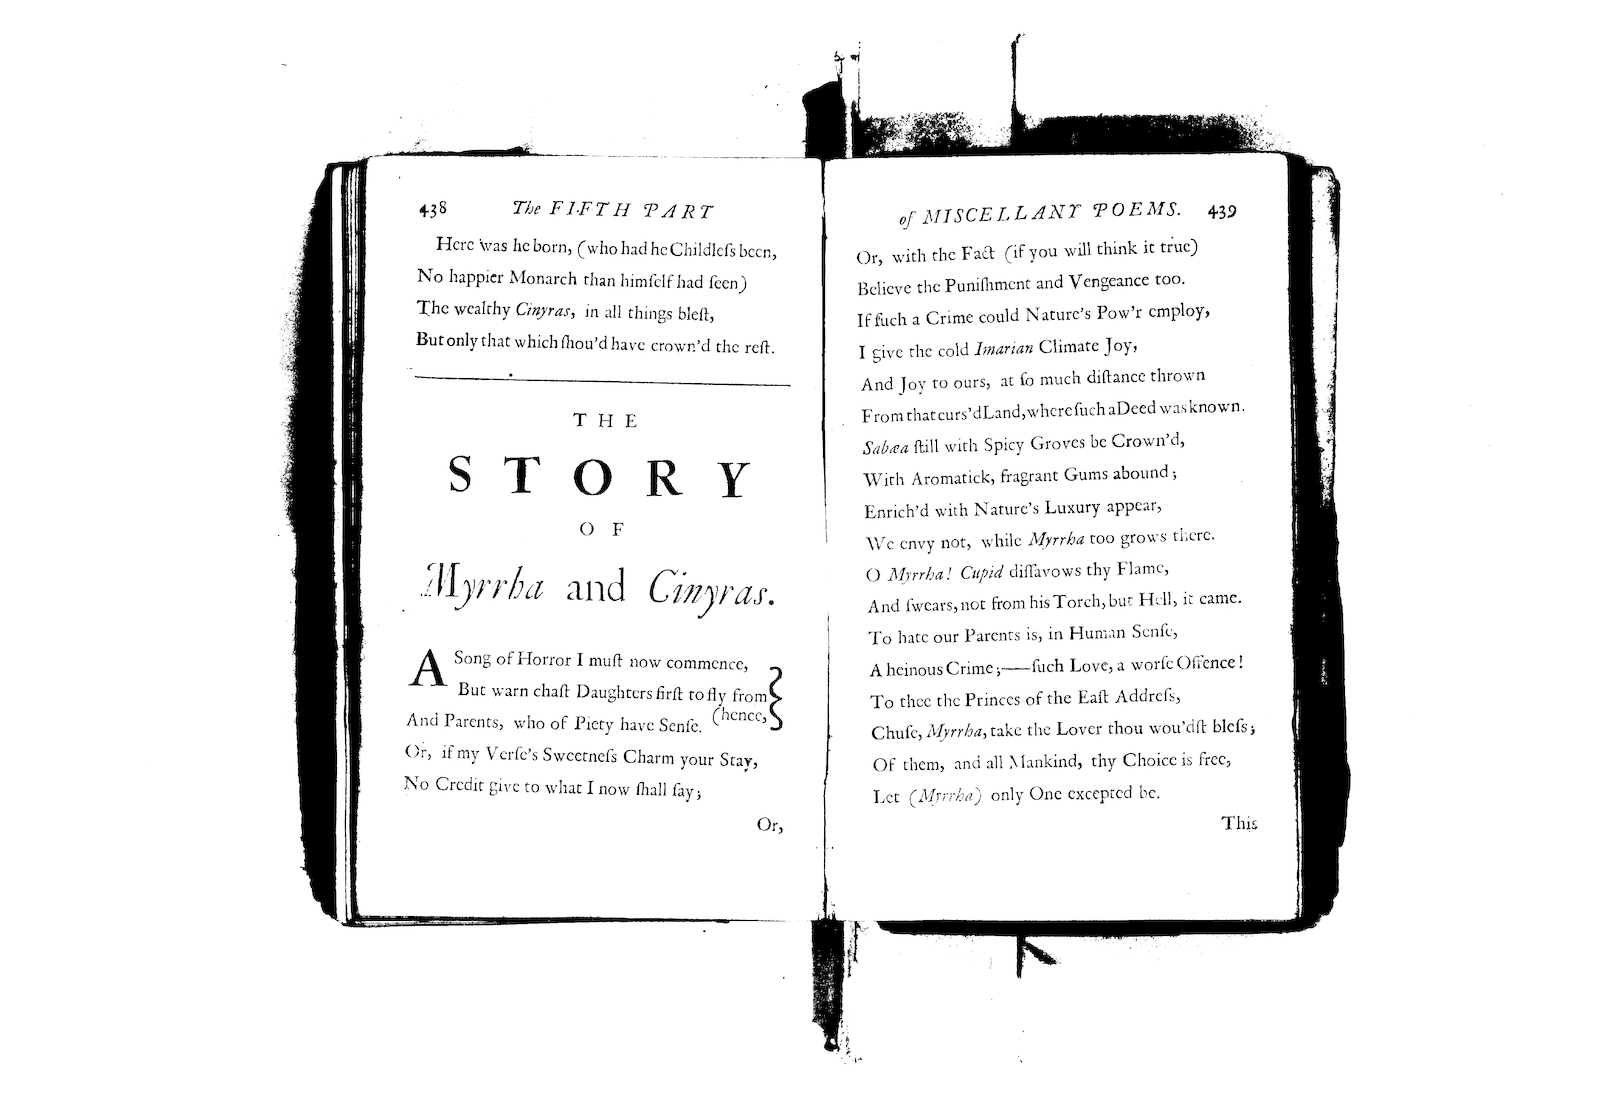 438 The FIFTH PART
Here was he born, (who had he Childleſs been,
No happier Monarch than himſelf had ſeen)
The wealthy Cinyras, in all things bleſt,
But only that which ſhou'd have crown'd the reſt.
THE
STORY
OF
Myrrha and Cinyras.
A Song of Horror I muſt now commence,
But warn chaſt Daughters firſt to fly from
(hence,
And Parents, who of Piety have Senſe.
Or, if my Verſe's Sweetneſs Charm your Stay,
No Credit give to what I now ſhall ſay;
Or,
of MISCELLANY POEMS. 439
Or, with the Fact (if you will think it true)
Believe the Puniſhment and Vengeance too.
If ſuch a Crime could Nature's Pow'r employ,
I give the cold Imarian Climate Joy,
And Joy to ours, at ſo much diſtance thrown
From that curs'd Land, where ſuch a Deed was known.
Sabæa ſtill with Spicy Groves be Crown'd,
With Aromatick, fragrant Gums abound;
Enrich'd with Nature's Luxury appear,
We envy not, while Myrrha too grows there.
O Myrrha! Cupid diſſavows thy Flame,
And ſwears, not from his Torch, but Hell, it came.
To hate our Parents is, in Human Senſe,
A heinous Crime;—ſuch Love, a worſe Offence!
To thee the Princes of the Eaſt Addreſs,
Chuſe, Myrrha, take the Lover thou wou'dſt bleſs;
Of them, and all Mankind, thy Choice is free,
Let (Myrrha) only One excepted be.
This